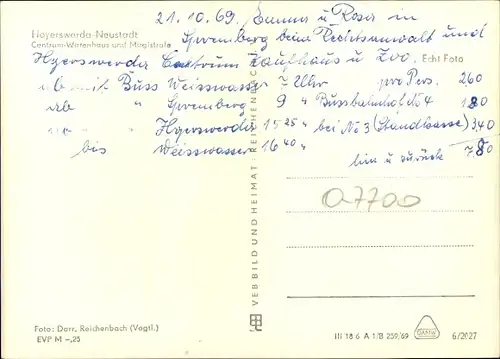 21.10.69 Gunner u Roser in
Hoyerswerda-Neustadt
Centrum-Warenhaus und Magistrale
Spremberg beim Rechtsanwalt und
Hyerswerda Centrum Kaufhaus u Zoo.
Echt Foto
ab mit Buss Weisswasser 7 Uhr pro Pers. 260
ab " Spremberg 9 " Bussbahnhof 4 180
" Hyerswerda 15 25 " bei No 3 (Standkasse) 340
bis Weisswasser 16 40 "
hin u zurück 7.80
07700
VEB BILD UND HEIMAT · REICHENBACH
Foto: Darr, Reichenbach (Vogtl.)
EVP M -,25
III 18 6 A 1/B 259/69
6/2027